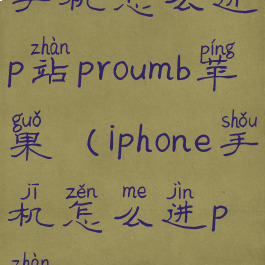 手机怎么进
zhàn píng
p站proumb苹
guǒ shǒu
果（iphone手
jī zěn me jìn
机怎么进p
zhàn